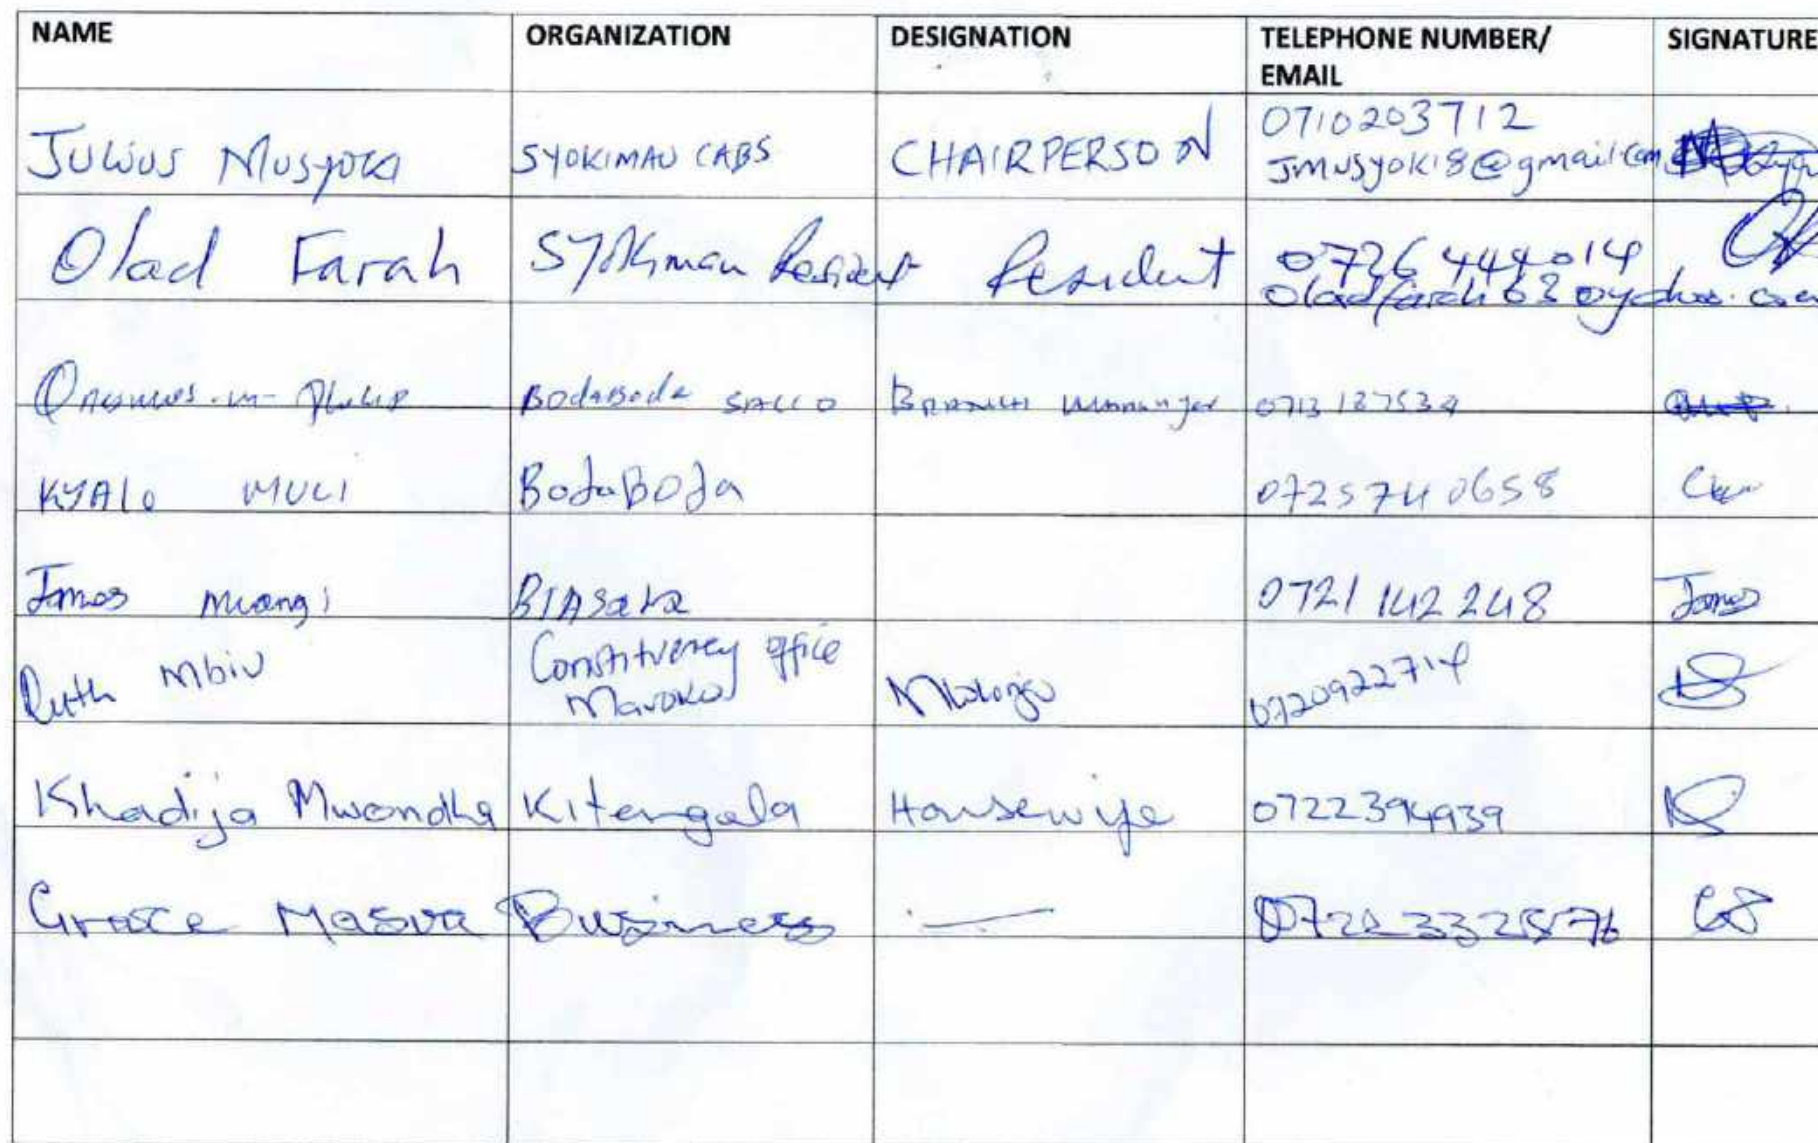 NAME ORGANIZATION DESIGNATION TELEPHONE NUMBER/ EMAIL SIGNATURE
Julius Musyoki SYOKIMAU CABS CHAIRPERSON 0710203712
Jmusyoki8@gmail.com
Olad Farah Syokimau Resident Resident 0726 444014
oladfarah63@yahoo.com
BodaBoda SACCO Branch Manager
KYALO MULI BodaBoda 0725740658
James Mwangi BIASARA 0721 142 248 James
Ruth Mbiu Constituency office
Mavoko Mlolongo 0720922714
Khadija Mwondha Kitengala Housewife 0722394939
Grace Masua Business —